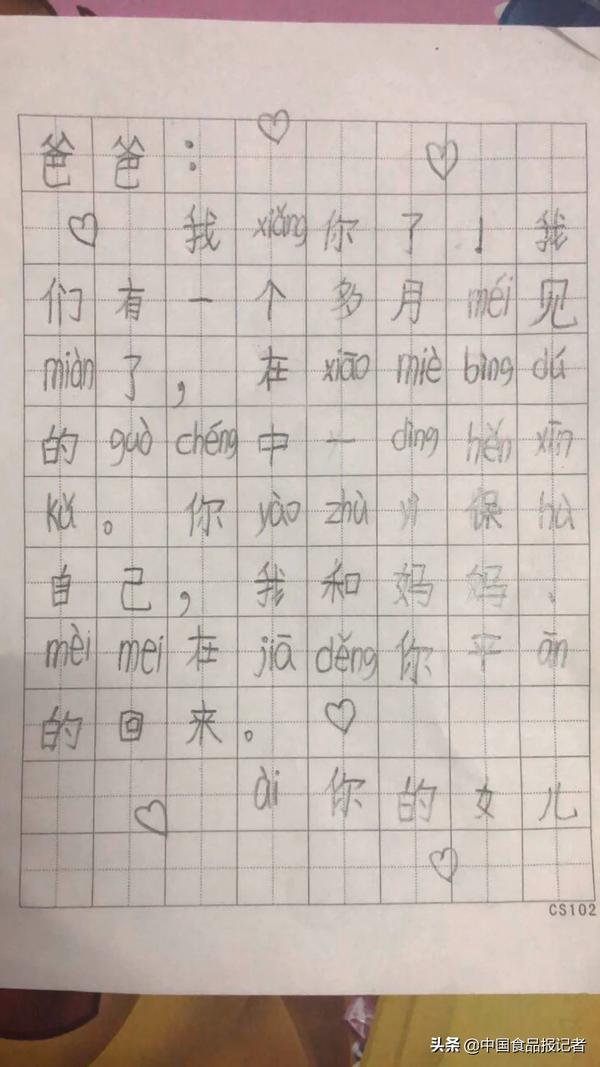 爸爸：
我xiǎng你了！我
们有一个多月méi见
miàn了，在xiāo miè bìng dú
的guò chéng中一dìng hěn xīn
kǔ。你yào zhù yì保hù
自己，我和妈妈、
mèi mei在jiā děng你平ān
的回来。
ài你的女儿
CS102
头条 @中国食品报记者